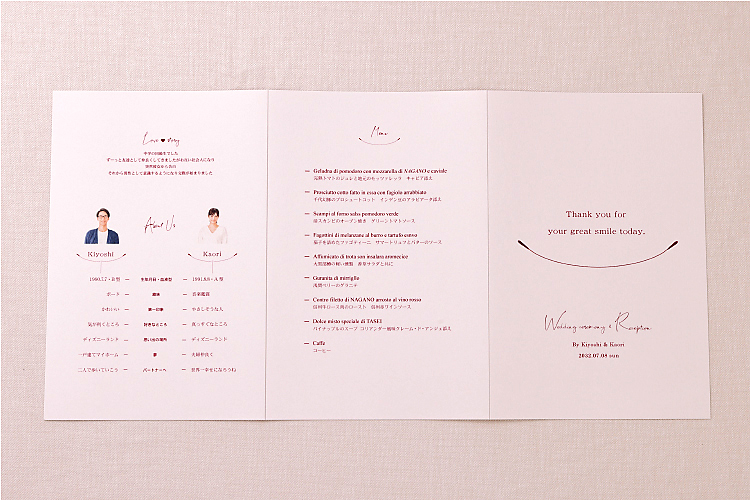 Love ♥ story
中学の同級生でした
ずーっと友達として仲良くしてきましたがお互い社会人になり
突然彼女から告白
それから異性として意識するようになり交際が始まりました
About Us
Kiyoshi
Kaori
1990.7.7・B型 ー 生年月日・血液型 ー 1991.8.9・A型
ボード ー 趣味 ー 音楽鑑賞
かわいい ー 第一印象 ー やさしそうな人
気が利くところ ー 好きなところ ー 真っすぐなところ
ディズニーランド ー 思い出の場所 ー ディズニーランド
一戸建てマイホーム ー 夢 ー 夫婦仲良く
二人で歩いていこう ー パートナーへ ー 世界一幸せになろうね
Menu
Geladna di pomodoro con mozzarella di NAGANO e caviale
完熟トマトのジュレと地元のモッツァレッラ キャビア添え
Prosciutto cotto fatto in essa con fagiolo arrabbiato
千代幻豚のプロシュートコット インゲン豆のアラビアータ添え
Scampi al forno salss pomodoro verde
岩スカンピのオーブン焼き グリーントマトソース
Fagottini di melanzane al burro e tartufo cstivo
茄子を詰めたファゴティーニ サマートリュフとバターのソース
Affumicato di trota son insalara aromecice
大黒部鱒の軽い燻製 香草サラダと共に
Guranita di mirtiglio
浅間ベリーのグラニテ
Contre filetto di NAGANO arrosto al vino rosso
信州牛ロース肉のロースト 信州赤ワインソース
Dolce misto speciale di TASEI
パイナップルのスープ コリアンダー風味クレーム・ド・アンジュ添え
Caffe
コーヒー
Thank you for
your great smile today.
Wedding ceremony & Reception
By Kiyoshi & Kaori
2032.07.08 sun